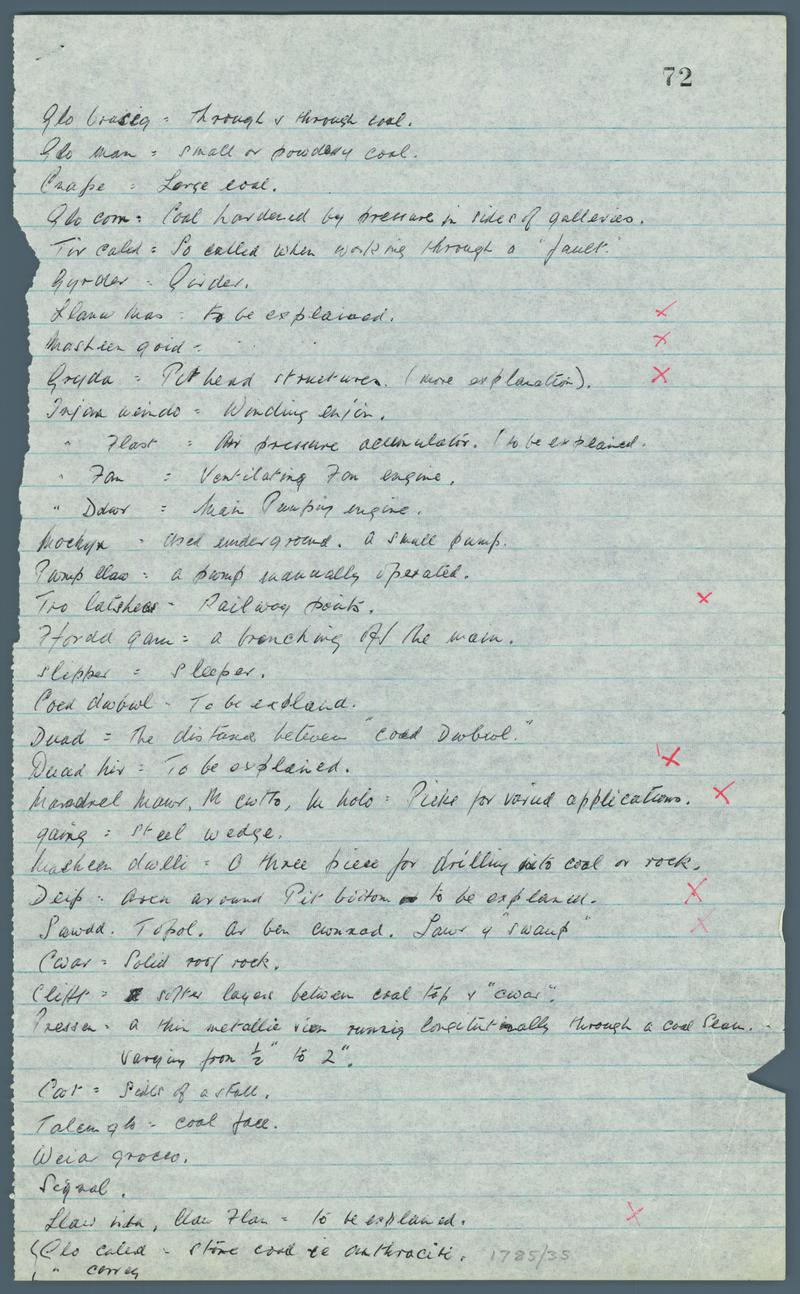 72
Glo brasig = through & through coal.
Glo man = small or powdery coal.
Cnape = Large coal.
Glo corn = Coal hardened by pressure in sides of galleries.
Tir caled = So called when working through a "fault."
Gyrder = Girder.
Llanw mas = to be explained.
Masheen goid = " "
Gryda = Pit head structures. (more explanation).
Injan weindo = Winding enjin.
" Flast = Air pressure accumulator. (to be explained.
" Fan = Ventilating Fan engine.
" Ddwr = Main Pumping engine.
Mochyn = Used underground. A small pump.
Pwmp llaw = a pump manually operated.
Tro latshes = Railway points.
Ffordd gam = a branching off the main.
Slipper = Sleeper.
Coed dwbwl = To be expland.
Duad = The distance between "coed Dwbwl."
Duad hir = To be explained.
Mandrel Mawr, M cwtto, M holo = Picks for varied applications.
gaing = steel wedge.
Masheen dwlli = A three piece for drilling into coal or rock.
Deip = Area around Pit bottom to be explained.
Sawdd. Topol. Ar ben Lawr y "swamp"
Cwar = Solid roof rock.
Clifft = softer layers between coal top & "cwar".
Pressen = a thin metallic vien running longitutinally through a coal seam.
Varying from ½" to 2".
Cot = Sides of a stall.
Talcen glo = coal face.
Weiar
Signal.
Llaw Llaw Flan = to be explained.
Glo caled = stone coal ie anthracite. 1785/35
" carreg